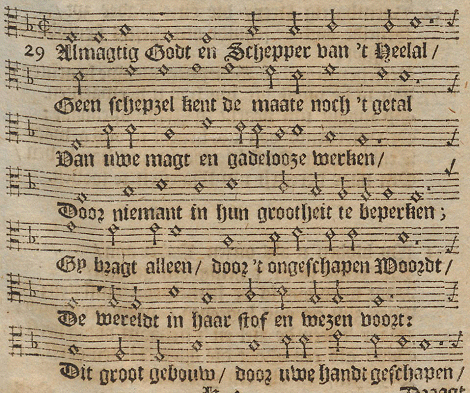 29 Almagtig Godt en Schepper van 't Heelal /
Geen schepzel kent de maate noch 't getal
Van uwe magt en gadelooze werken /
Door niemant in hun grootheit te beperken ;
Gy bragt alleen / door 't ongeschapen Woordt /
De wereldt in haar stof en wezen voort:
Dit groot gebouw / door uwe handt geschapen /
Draagt